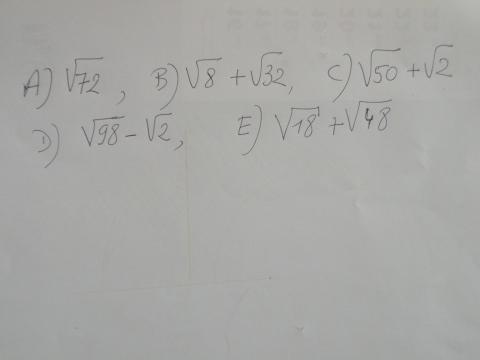 A) √72 , B) √8 + √32, C) √50 + √2
D) √98 - √2, E) √18 + √48